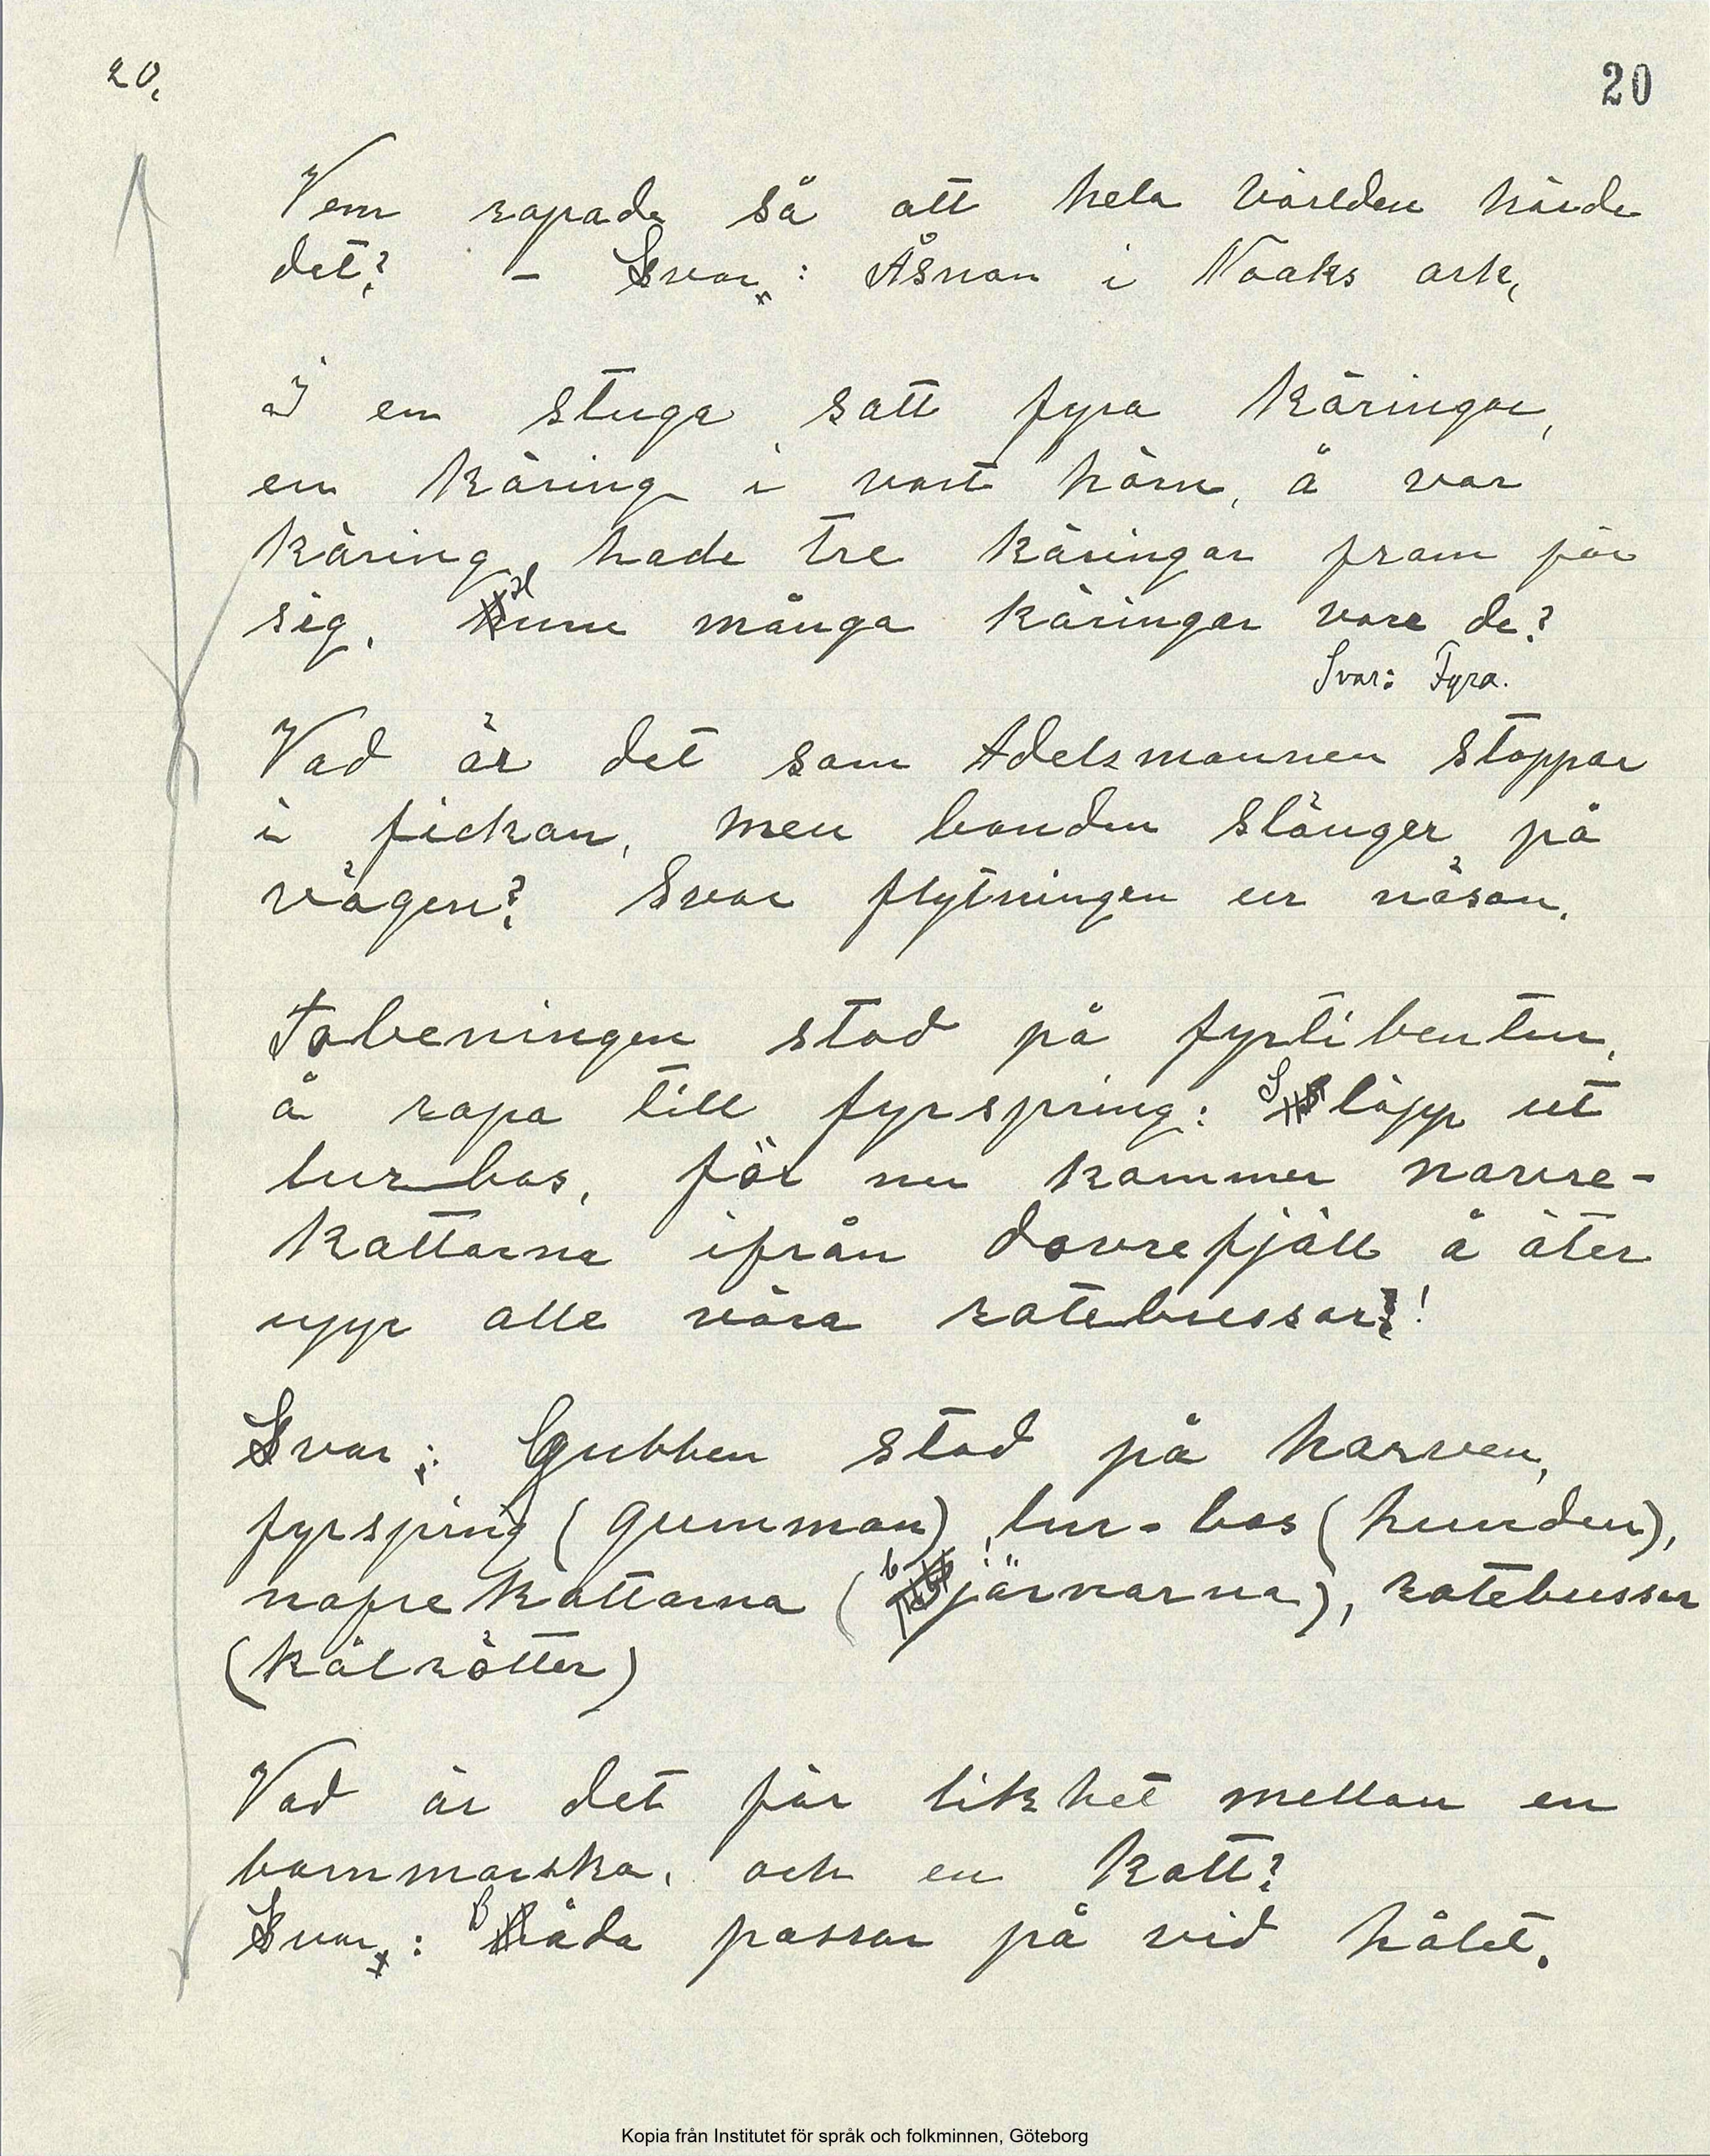 20.
20
Vem ropade så att hela världen hörde
det? - Svar: Åsnan i Noaks ark,
I en stuga satt fyra käringar,
en käring i vart hörn, å var
käring hade tre käringar fram för
sig. Huru många käringar vore de?
Svar: Fyra.
Vad är det som Adelsmannen stoppar
i fickan, men bonden slänger på
vägen? Svar flytningen ur näsan.
Tobeningen stod på fyrtibenten,
å ropa till fyrspring: Släpp ut
lurbos, för nu kommer norre-
kattarna ifrån dovrefjäll å äter
upp alle våra rotebussar!
Svar: Gubben stod på harven,
fyrspring (gumman), lur-bos (hunden),
nofre kattarna (björnarna), rotebussar
(kålrötter)
Vad är det för likhet mellan en
barnmorska, och en katt?
Svar: Båda passar på vid hålet.
Kopia från Institutet för språk och folkminnen, Göteborg